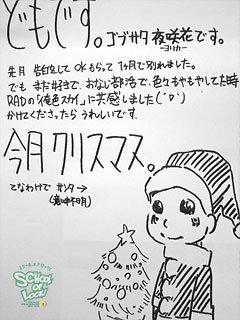 どもです。ゴブサク 夜咲花です。
ーヨリカー
先月 告白をして OKもらって 1ヶ月で別れました。
でも まだ好きで、おなじ部活で、色々もやもやしてた時
RADの「俺色スカイ」に共感しました(´▽`)
かけてくださったら うれしいです。
今月クリスマス。
てなわけで サンタ→
(意味不明)
SCHOOL OF LOCK!